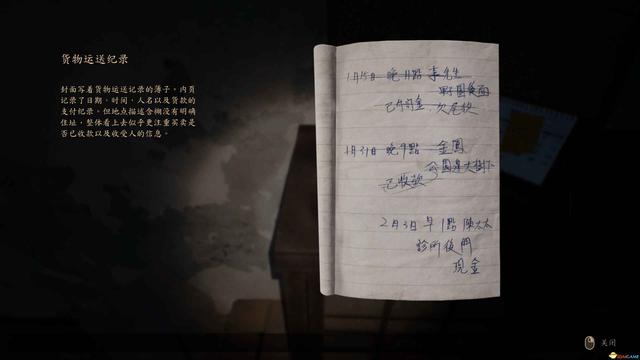 货物运送纪录
封面写着货物运送记录的簿子，内頁
记录了日期、时间、人名以及货款的
支付纪录。但地点描述含糊没有明确
住址，整体看上去似乎更注重买卖是
否已收款以及收受人的信息。
1月15日 晚11點 李先生
後面
已付訂金 欠尾款
1月31日 晚9點 金鳳
公園邊大樹下
已收款
2月3日 早1點 陳太太
診所後門
現金
关闭